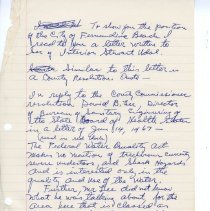 To show you the position
of the City of Fernandina Beach I
read to you a letter written to
Sec of Interior Stuart Udal.
Similar to this letter is
a County Resolution. Quote -
In reply to the County Commissioner
resolution, David B. Lee, Director
of Bureau of Sanitary Engineering of
the State Board of Health states
in a letter of Jun 14, 1967 -
The Federal Water Quality Act
makes no mention of
and is interested only in the
quality and use of the water.
Further, Mr Lee did not know
what he was talking about, for the
area here that is classed as